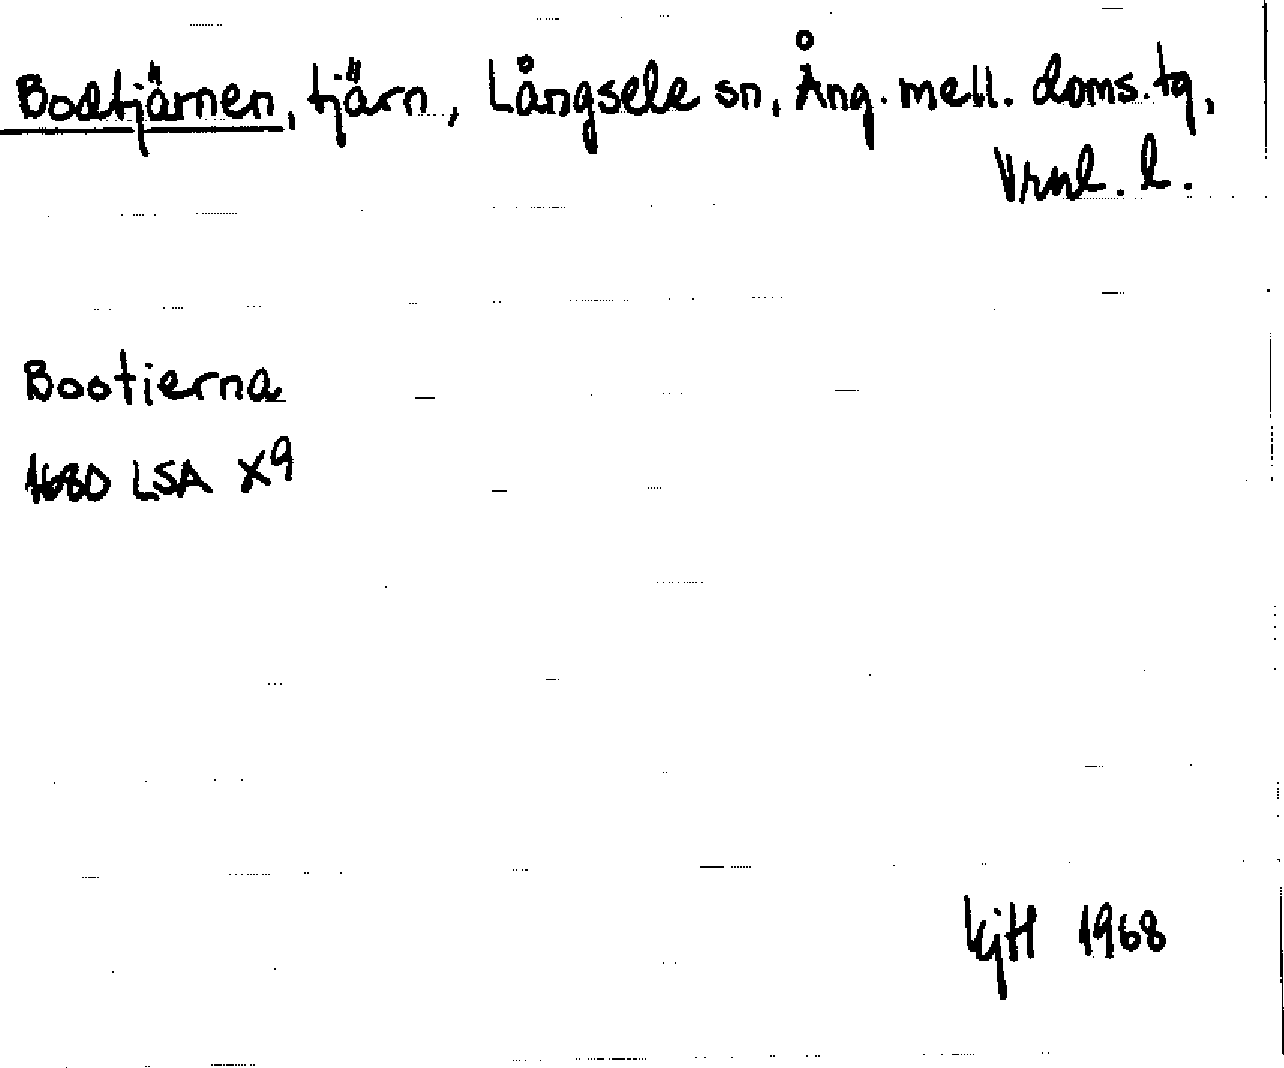 Bodtjärnen, tjärn, Långsele sn, Ång. mell. doms. tg,
Vrnl. l.
Bootierna
1680 LSA X9
KjH 1968